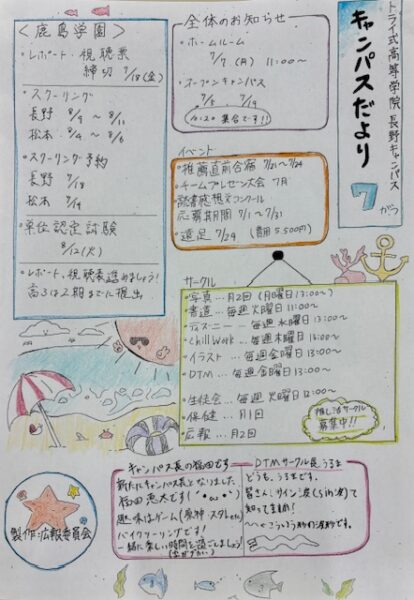 トライ式高等学院 長野キャンパス
キャンパスだより
7がつ
＜鹿島学園＞
・レポート、視聴票
締切 7/18(金)
・スクーリング
長野 8/9〜8/11
松本 8/4〜8/6
・スクーリング予約
長野 7/18
松本 7/14
・単位認定試験
8/12(火)
・レポート、視聴表進めましょう!
高3は2期までに提出
全体のお知らせ
・ホームルーム
7/7(月) 11:00〜
・オープンキャンパス
7/5, 7/19
集合です!!
イベント
・推薦直前合宿 7/21〜7/24
・チームプレゼン大会 7月
・読書感想文コンクール
応募期間 7/1〜7/31
・遠足 7/24 (費用5500円)
サークル
・写真…月2回(月曜日13:00〜)
・書道…毎週火曜日11:00〜
・ディズニー…毎週水曜日13:00〜
・Chill Work…毎週木曜日13:00〜
・イラスト…毎週金曜日13:00〜
・DTM…毎週金曜日13:00〜
・生徒会…毎週火曜日12:00〜
・保健…月1回
・広報…月2回
推し活サークル
募集中!!
キャンパス長の福田です
新たにキャンパス長となりました
福田 です(・ω・)
趣味はゲーム(原神・スタレetc)
バイクツーリングです!
一緒に楽しい時間を過ごしましょう
DTMサークル長 うるま
どうも、うるまです。
皆さん、サイン波(sin波)って
知ってますか?
〜〜こういう形の波形です。
製作:広報委員会